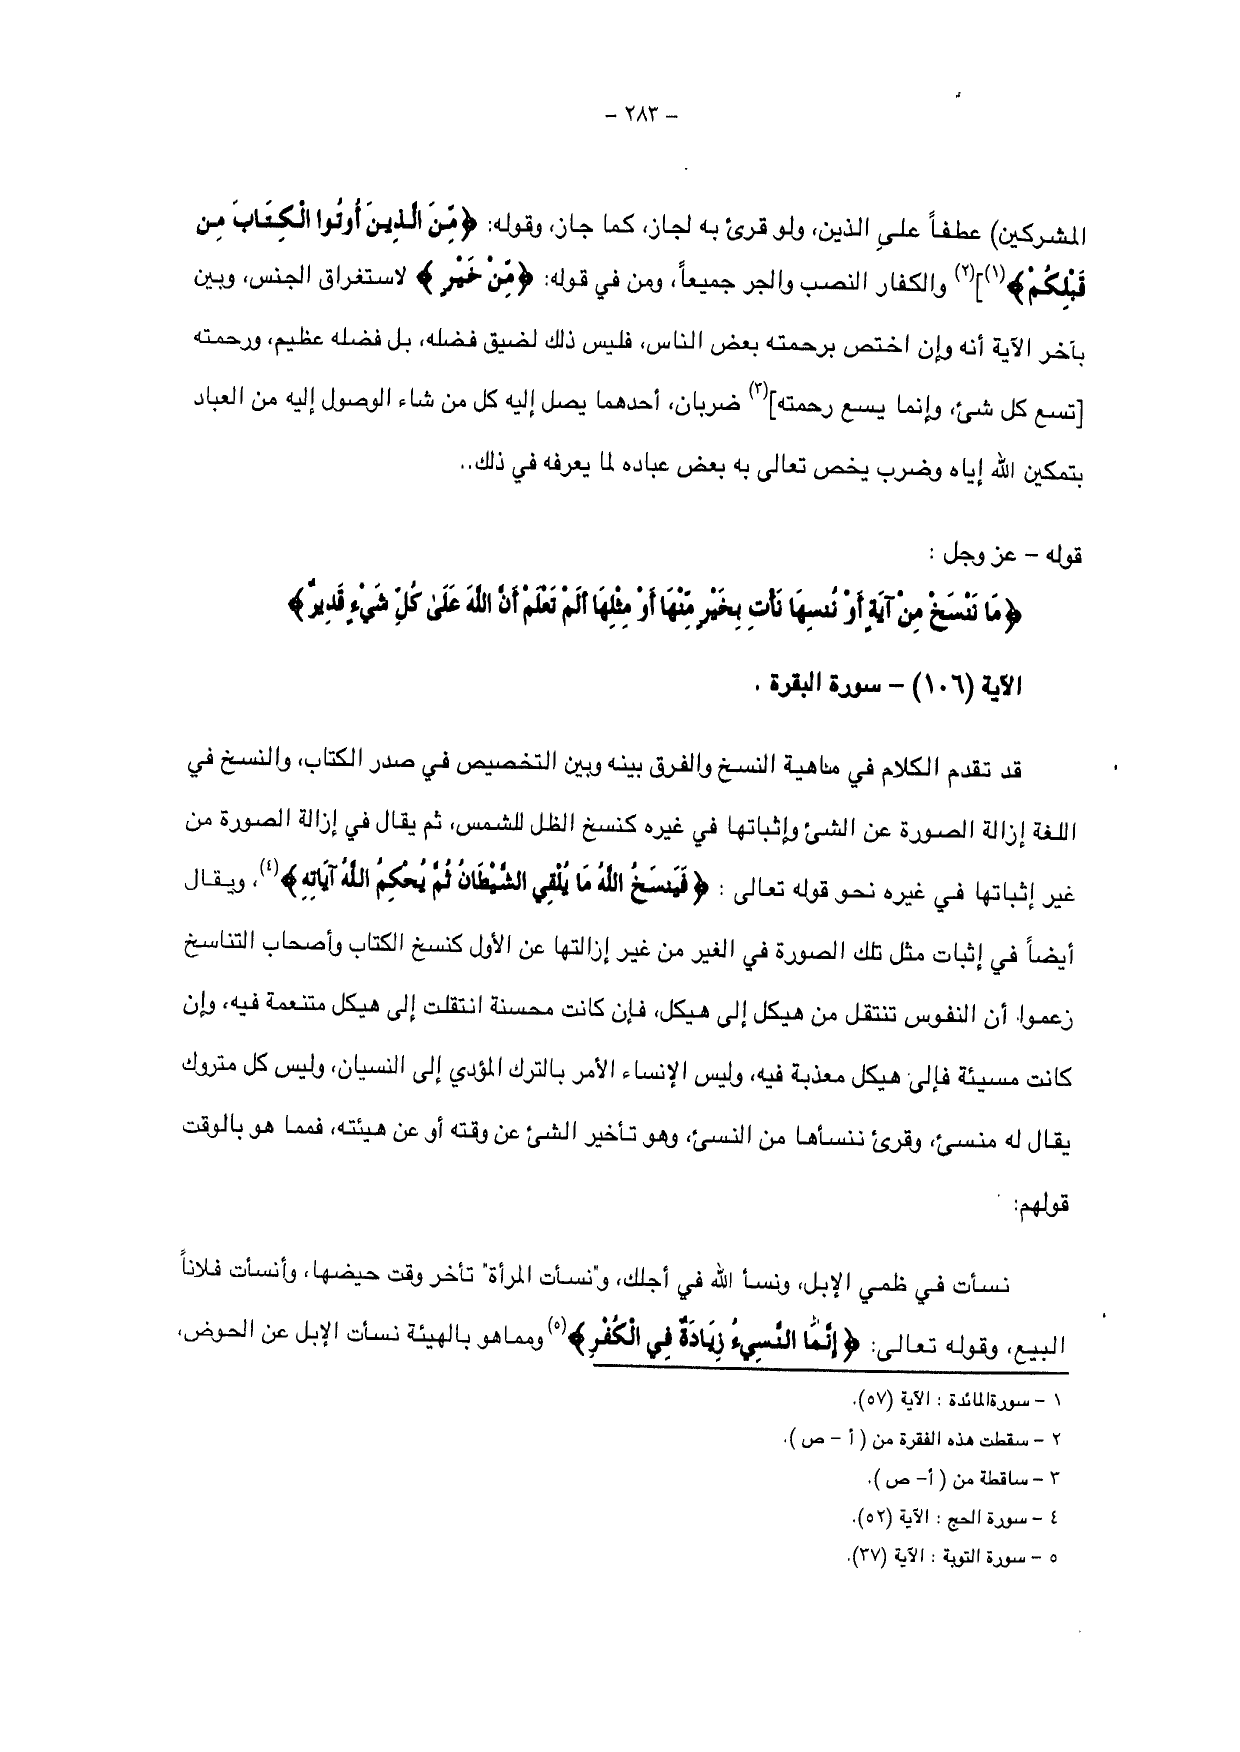 – ٢٨٣ –
المشركين) عطفاً على الذين، ولو قرئ به لجاز، كما جاز، وقوله: ﴿مِّنَ الَّذِينَ أُوتُوا الْكِتَابَ مِن
قَبْلِكُمْ﴾(١)](٢) والكفار النصب والجر جميعاً، ومن في قوله: ﴿مِّنْ خَيْرٍ﴾ لاستغراق الجنس، وبين
بآخر الآية أنه وإن اختص برحمته بعض الناس، فليس ذلك لضيق فضله، بل فضله عظيم، ورحمته
[تسع كل شئ، وإنما يسع رحمته](٣) ضربان، أحدهما يصل إليه كل من شاء الوصول إليه من العباد
بتمكين الله إياه وضرب يخص تعالى به بعض عباده لما يعرفه في ذلك..
قوله – عز وجل :
﴿مَا نَنْسَخْ مِنْ آيَةٍ أَوْ نُنسِهَا نَأْتِ بِخَيْرٍ مِّنْهَا أَوْ مِثْلِهَا أَلَمْ تَعْلَمْ أَنَّ اللَّهَ عَلَىٰ كُلِّ شَيْءٍ قَدِيرٌ﴾
الآية (١٠٦) – سورة البقرة .
قد تقدم الكلام في مناهية النسخ والفرق بينه وبين التخصيص في صدر الكتاب، والنسخ في
اللغة إزالة الصورة عن الشئ وإثباتها في غيره كنسخ الظل للشمس، ثم يقال في إزالة الصورة من
غير إثباتها في غيره نحو قوله تعالى : ﴿فَيَنسَخُ اللَّهُ مَا يُلْقِي الشَّيْطَانُ ثُمَّ يُحْكِمُ اللَّهُ آيَاتِهِ﴾(٤)، ويقال
أيضاً في إثبات مثل تلك الصورة في الغير من غير إزالتها عن الأول كنسخ الكتاب وأصحاب التناسخ
زعموا أن النفوس تنتقل من هيكل إلى هيكل، فإن كانت محسنة انتقلت إلى هيكل متنعمة فيه، وإن
كانت مسيئة فإلى هيكل معذبة فيه، وليس الإنساء الأمر بالترك المؤدي إلى النسيان، وليس كل متروك
يقال له منسئ، وقرئ ننسأها من النسئ، وهو تأخير الشئ عن وقته أو عن هيئته، فمما هو بالوقت
قولهم:
نسأت في ظمي الإبل، ونسأ الله في أجلك، و"نسأت المرأة" تأخر وقت حيضها، وأنسأت فلاناً
البيع، وقوله تعالى: ﴿إِنَّمَا النَّسِيءُ زِيَادَةٌ فِي الْكُفْرِ﴾(٥) ومماهو بالهيئة نسأت الإبل عن الحوض،
١ – سورة المائدة : الآية (٥٧).
٢ – سقطت هذه الفقرة من ( أ – ص ).
٣ – ساقطة من ( أ– ص ).
٤ – سورة الحج : الآية (٥٢).
٥ – سورة التوبة : الآية (٣٧).